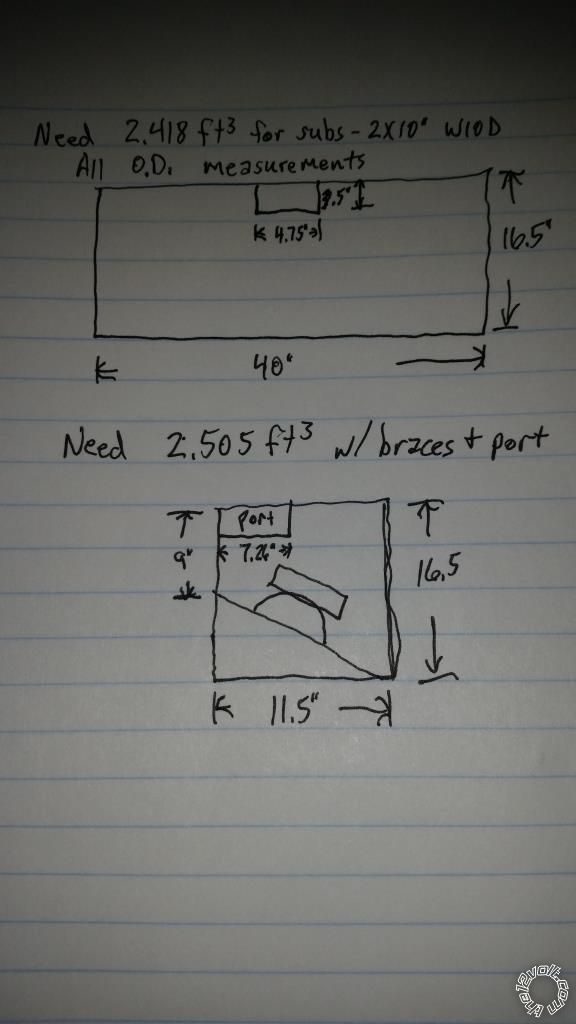 Need 2.418 ft³ for subs - 2x10" W10D
All O.D. measurements
3.5"
4.75"
16.5"
40"
Need 2.505 ft³ w/ braces + port
port
7.26"
9"
16.5
11.5"
the12volt.com